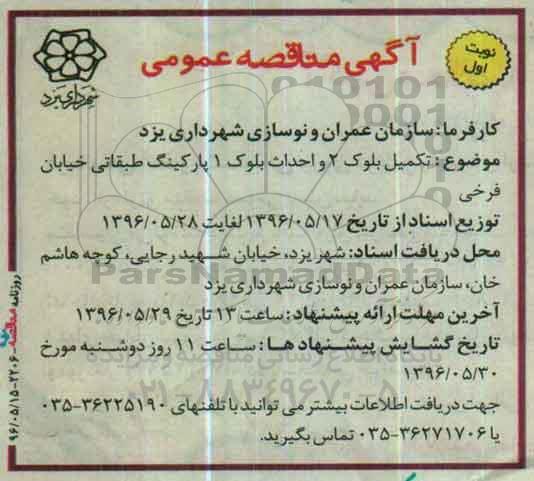 آگهی مناقصه عمومی
نوبت اول
شهرداری یزد
کارفرما: سازمان عمران و نوسازی شهرداری یزد
موضوع: تکمیل بلوک ۲ و احداث بلوک ۱ پارکینگ طبقاتی خیابان
فرخی
توزیع اسناد از تاریخ ۱۳۹۶/۰۵/۱۷ لغایت ۱۳۹۶/۰۵/۲۸
محل دریافت اسناد: شهر یزد، خیابان شهید رجایی، کوچه هاشم
خان، سازمان عمران و نوسازی شهرداری یزد
آخرین مهلت ارائه پیشنهاد: ساعت ۱۳ تاریخ ۱۳۹۶/۰۵/۲۹
تاریخ گشایش پیشنهاد ها: ساعت ۱۱ روز دوشنبه مورخ
۱۳۹۶/۰۵/۳۰
جهت دریافت اطلاعات بیشتر می توانید با تلفنهای ۳۶۲۲۵۱۹۰-۰۳۵
یا ۳۶۲۷۱۷۰۶-۰۳۵ تماس بگیرید.
روزنامه مناقصه ۲۲۰۶-۹۶/۰۵/۱۵
ParsNamadData
۰۲۱-۸۸۳۴۹۶۷۰